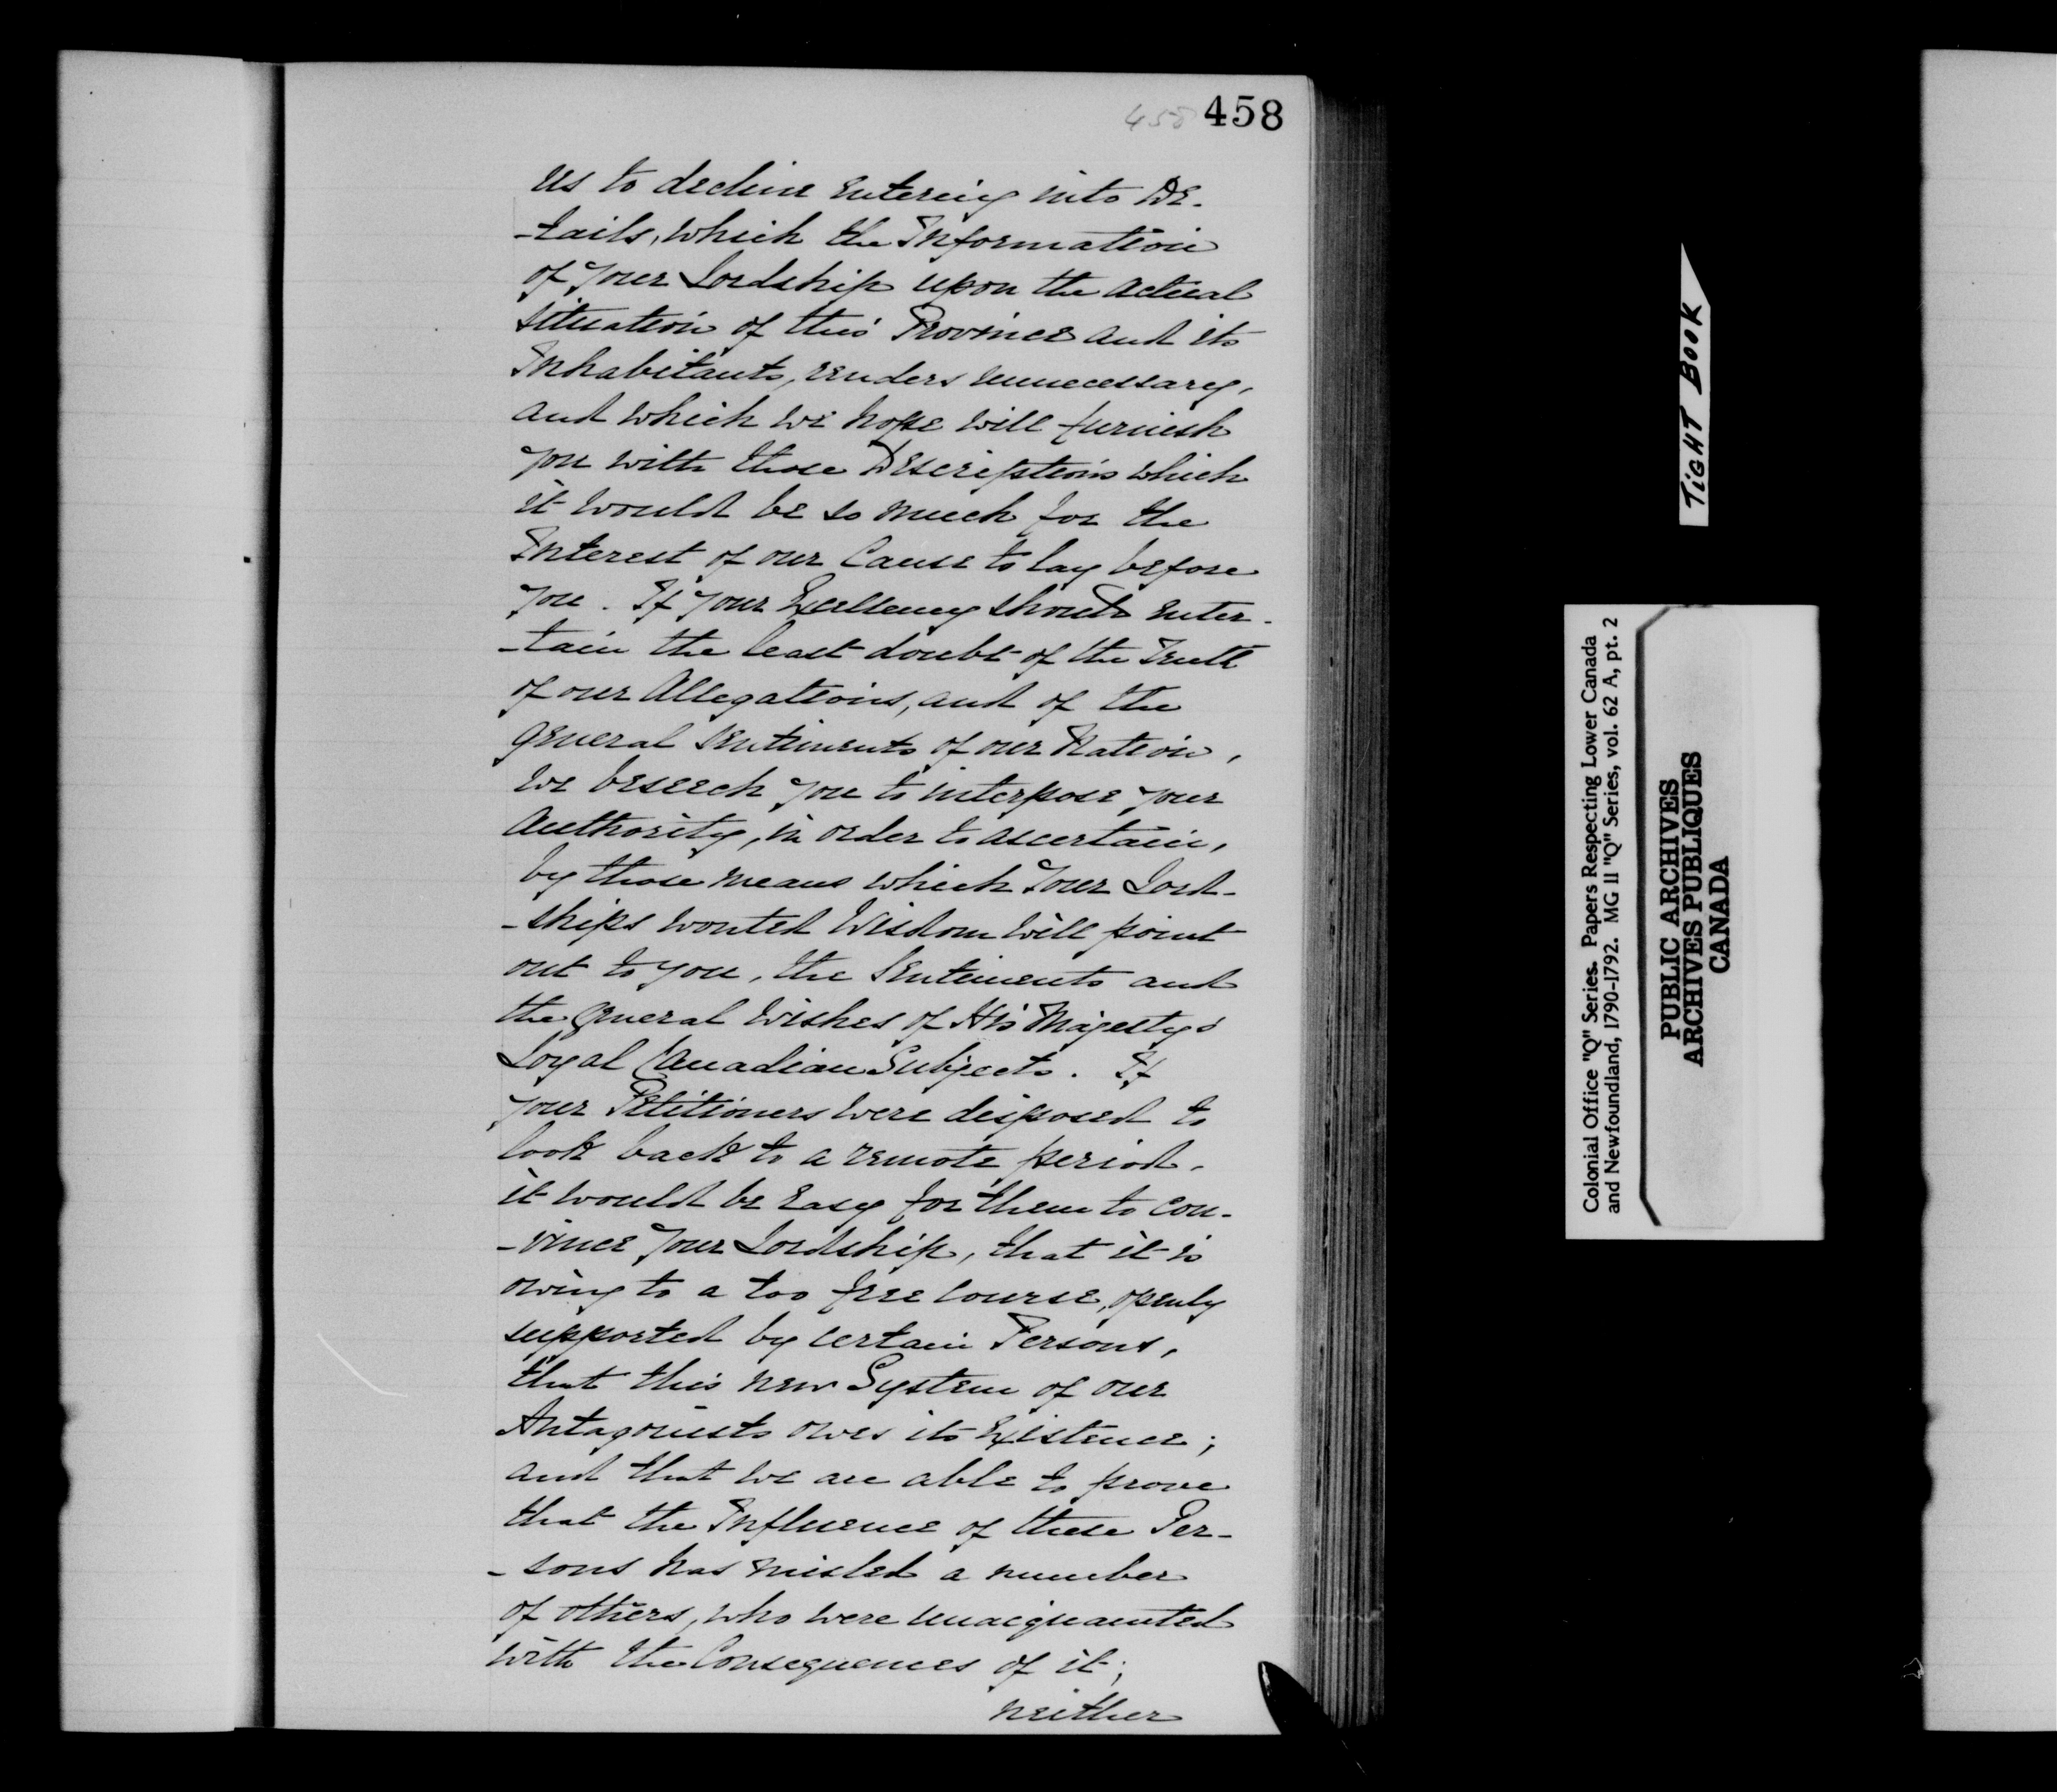 458 458
us to decline entering into De-
-tails, which the Information
of Your Lordship upon the actual
situation of this Province and its
Inhabitants, renders unnecessary,
and which we hope will furnish
you with those Descriptions which
it would be so much for the
Interest of our Cause to lay before
you. If Your Excellency should enter-
-tain the least doubt of the Truth
of our Allegations, and of the
general sentiments of our Nation,
we beseech you to interpose your
Authority, in order to ascertain,
by those means which Your Lord-
-ships wonted Wisdom will point
out to you, the Sentiments and
the general wishes of His Majesty's
Loyal Canadian Subjects. If
your Petitioners were disposed to
look back to a remote period,
it would be easy for them to con-
-vince Your Lordship, that it is
owing to a too free course, openly
supported by certain Persons,
that this new System of our
Antagonists owes its Existence;
and that we are able to prove
that the Influence of these Per-
-sons has misled a number
of others, who were unacquainted
with the Consequences of it;
neither
TIGHT BOOK
Colonial Office "Q" Series. Papers Respecting Lower Canada
and Newfoundland, 1790-1792. MG 11 "Q" Series, vol. 62 A, pt. 2
PUBLIC ARCHIVES
ARCHIVES PUBLIQUES
CANADA